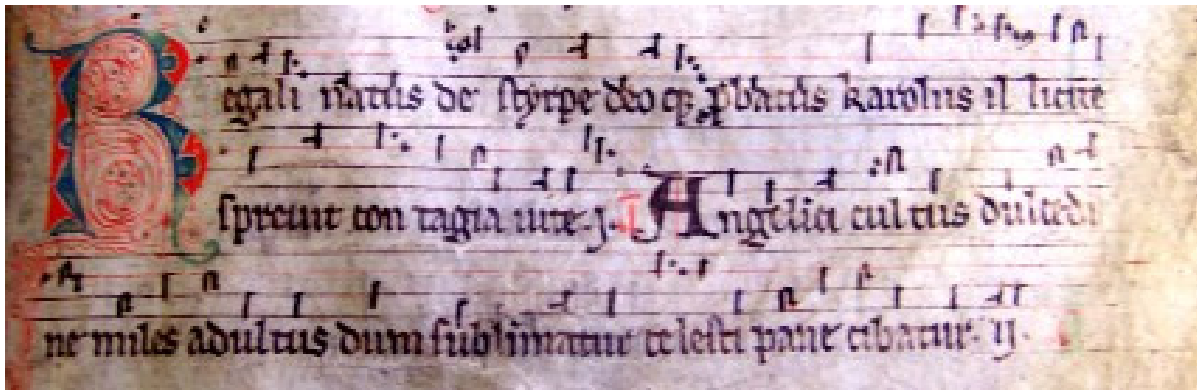 Regali natus de styrpe deo q; p̱batus karolus illicite
spreuit contagia uite. j. Angelici cultus dulcedi
ne miles adultus dum sublimatur celesti pane cibatur. ij.